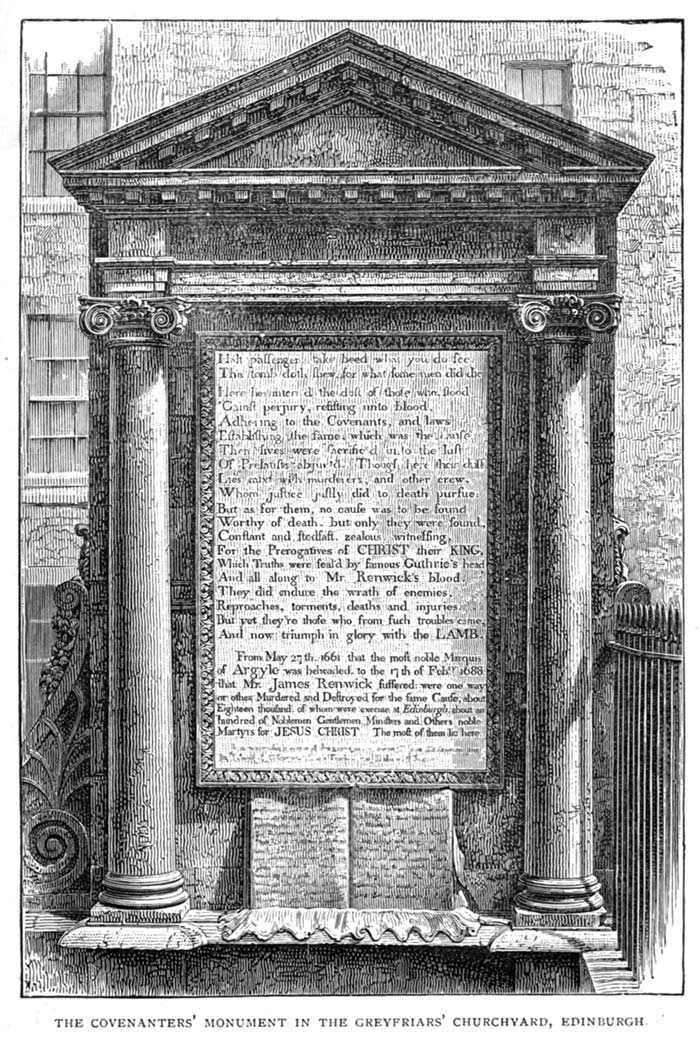 Halt passenger, take heed what you do see,
This tomb doth shew, for what some men did die
Here lies interr'd the dust of those who stood
'Gainst perjury, resisting unto blood,
Adhering to the Covenants, and laws
Establishing the same, which was the cause
Their lives were sacrific'd unto the lust
Of Prelatists abjur'd. Though here their dust
Lies mixt with murderers, and other crew,
Whom justice justly did to death pursue:
But as for them, no cause was to be found
Worthy of death, but only they were found,
Constant and stedfast, zealous, witnessing,
For the Prerogatives of CHRIST their KING.
Which Truths were seal'd by famous Guthrie's head
And all along to Mr. Renwick's blood.
They did endure the wrath of enemies,
Reproaches, torments, deaths and injuries.
But yet they're those who from such troubles came,
And now triumph in glory with the LAMB.
From May 27th. 1661 that the most noble Marquis
of Argyle was beheaded, to the 17th of Febry. 1688
that Mr. James Renwick suffered: were one way
or other Murdered and Destroyed for the same Cause, about
Eighteen thousand, of whom were execute at Edinburgh, about an
hundred of Noblemen Gentlemen, Ministers and Others noble
Martyrs for JESUS CHRIST. The most of them lie here.
THE COVENANTERS' MONUMENT IN THE GREYFRIARS' CHURCHYARD, EDINBURGH.